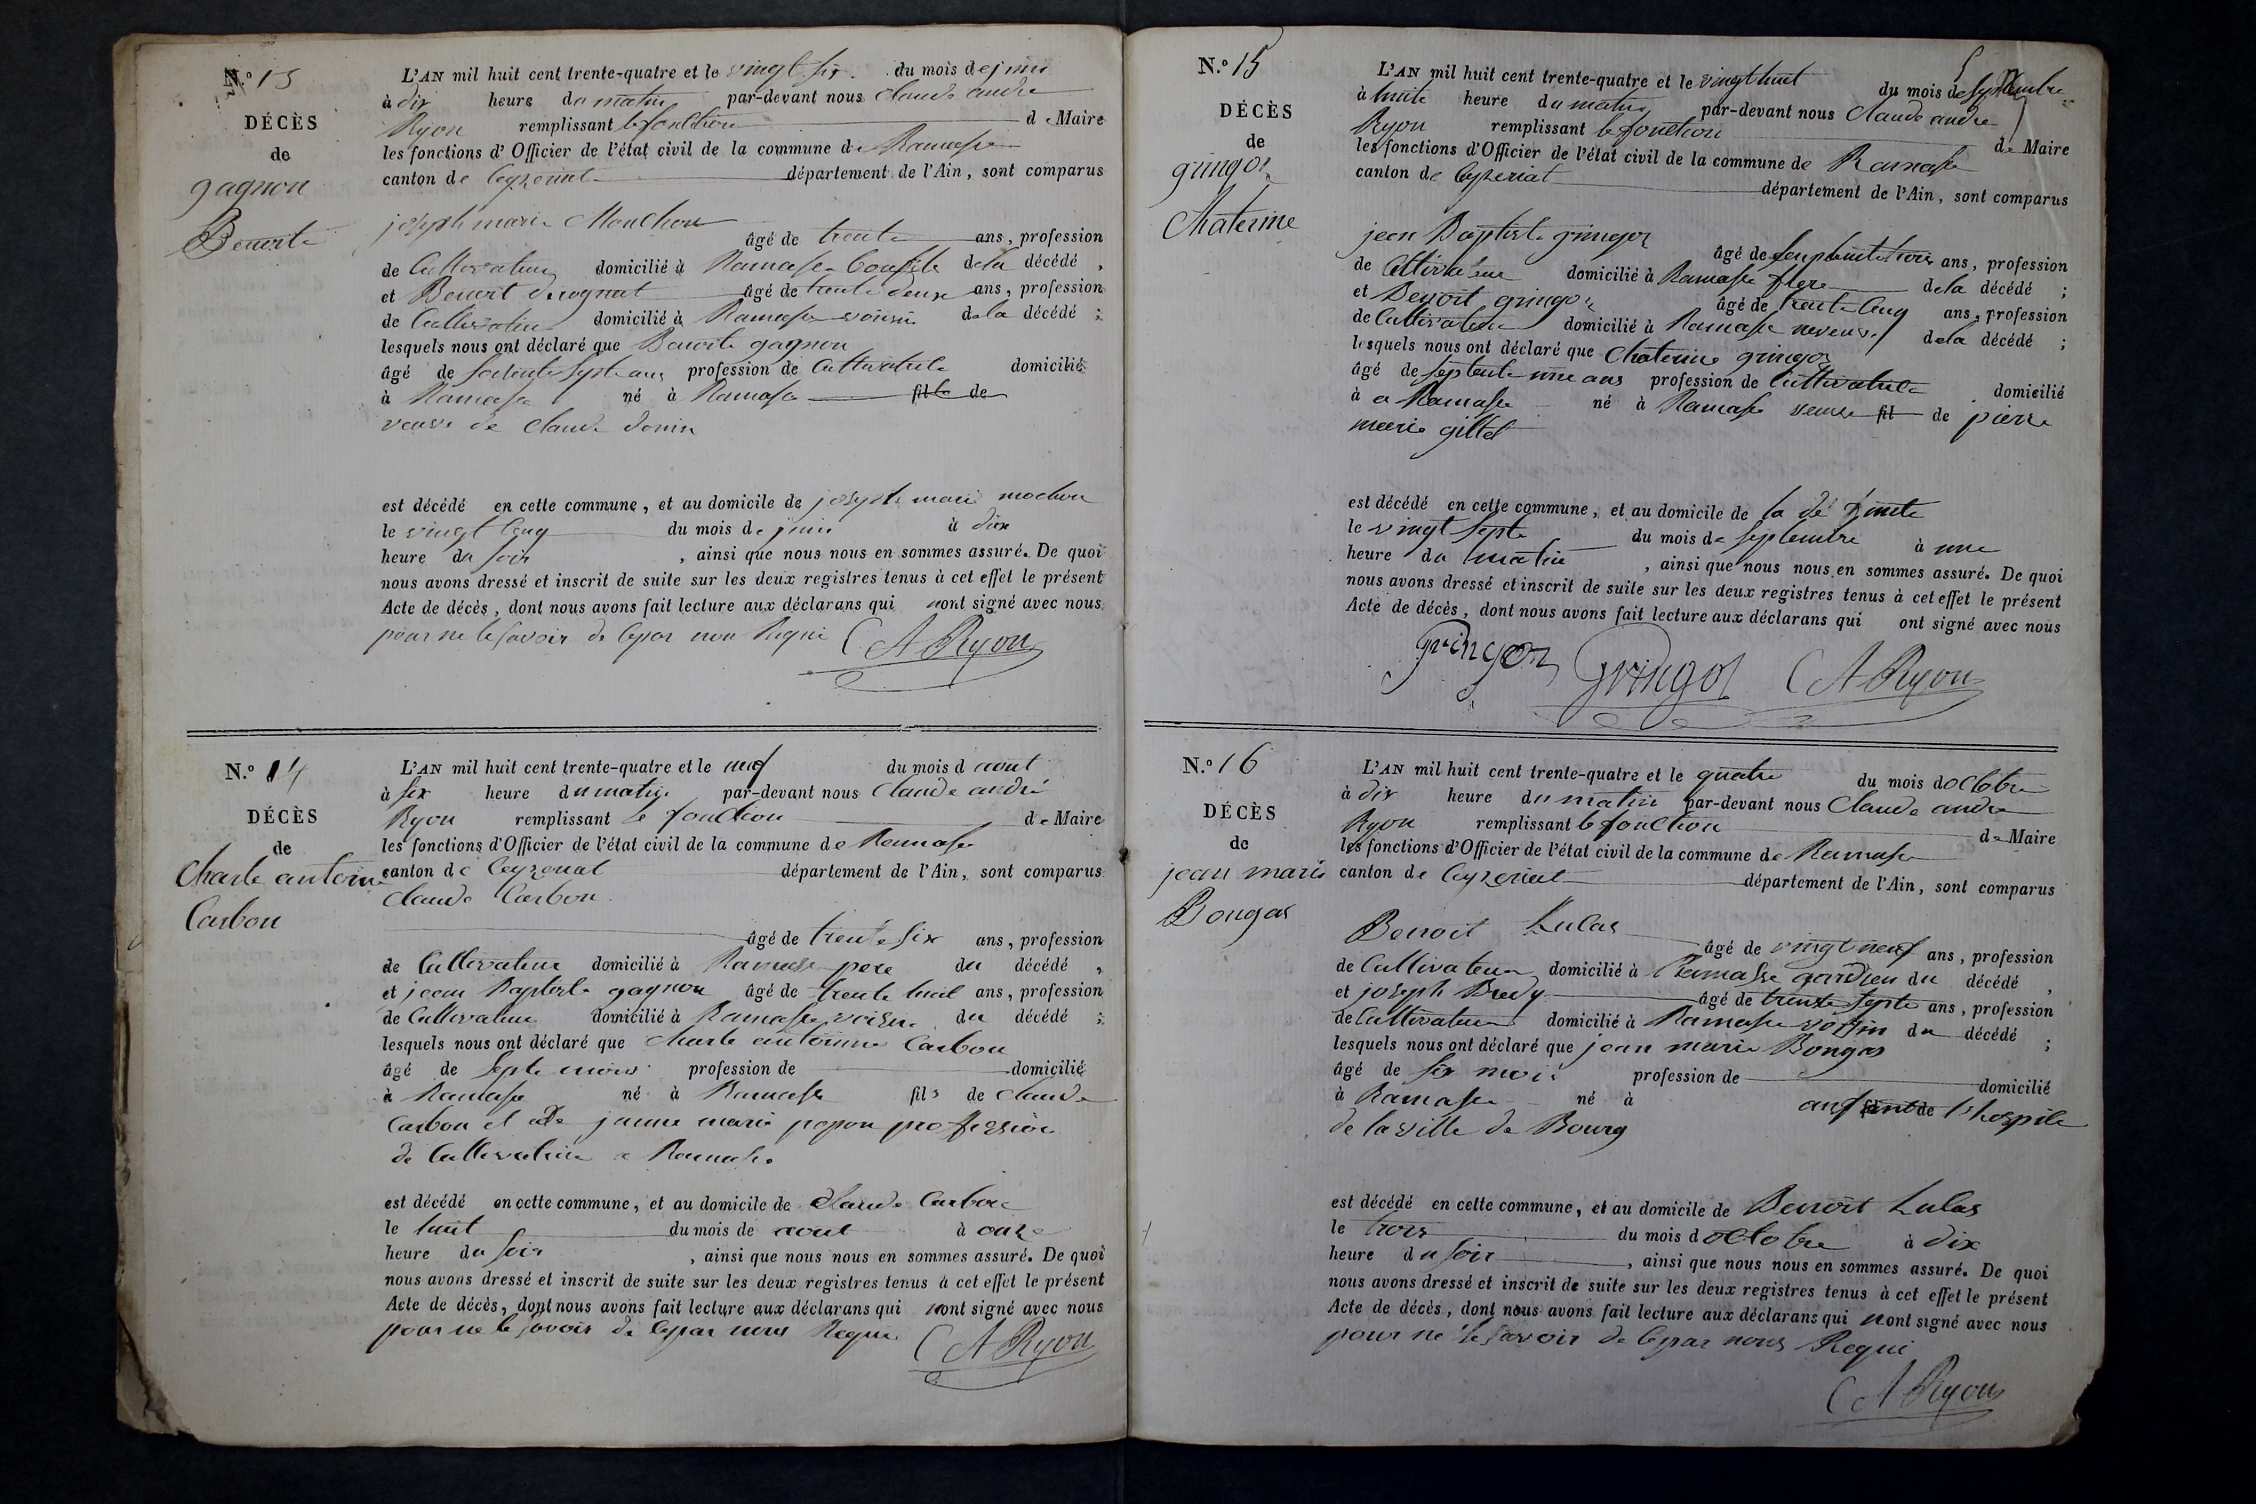 N.º 13
DÉCÈS
de
gagnon
Benoite
L'AN mil huit cent trente-quatre et le vingt six du mois de juin
à dix heure du matin par-devant nous Claude andre
Ryon remplissant le fonction de Maire
les fonctions d'Officier de l'état civil de la commune de Ramasse
canton de Ceyzeriat département de l'Ain, sont comparus
joseph marie Mouchon
âgé de trente ans, profession
de Cultivateur domicilié à Ramasse dela décédé,
et Benoit derognat âgé de trente deux ans, profession
de Cultivateur domicilié à Ramasse voisin dela décédé;
lesquels nous ont déclaré que Benoite gagnon
âgé de soixente septe ans profession de Cultivatrice domicilié
à Ramasse né à Ramasse fille de
veuve de Claude
est décédé en cette commune, et au domicile de joseph marie mochon
le vingt Cinq du mois de juin à dix
heure du soir, ainsi que nous nous en sommes assuré. De quoi
nous avons dressé et inscrit de suite sur les deux registres tenus à cet effet le présent
Acte de décès, dont nous avons fait lecture aux déclarans qui nont signé avec nous
pour ne le savoir de Requi CA Ryon
N.º 14
DÉCÈS
de
Charle antoine
Carbon
L'AN mil huit cent trente-quatre et le neuf du mois d aout
à six heure du matin par-devant nous Claude andré
Ryon remplissant le fonction de Maire
les fonctions d'Officier de l'état civil de la commune de Ramasse
canton de Ceyzeriat département de l'Ain, sont comparus
Claude Carbon
âgé de trente six ans, profession
de Cultivateur domicilié à Ramasse pere du décédé,
et jean Baptiste gagnon âgé de trente huit ans, profession
de Cultivateur domicilié à Ramasse voisin du décédé;
lesquels nous ont déclaré que Charle antoine Carbon
âgé de septe mois profession de domicilié
à Ramasse né à Ramasse fils de Claude
Carbon et de jeanne marie popon profession
de Cultivatrice a Ramasse
est décédé en cette commune, et au domicile de Claude Carbon
le huit du mois de aout à onze
heure du soir, ainsi que nous nous en sommes assuré. De quoi
nous avons dressé et inscrit de suite sur les deux registres tenus à cet effet le présent
Acte de décès, dont nous avons fait lecture aux déclarans qui nont signé avec nous
pour ne le savoir de Cepar nous Requi CA Ryon
N.º 15
DÉCÈS
de
gringoz
Chaterine
L'AN mil huit cent trente-quatre et le vingt huit du mois de Septembre
à huite heure du matin par-devant nous Claude andre
Ryon remplissant le fonction de Maire
les fonctions d'Officier de l'état civil de la commune de Ramasse
canton de Ceyzeriat département de l'Ain, sont comparus
jean Baptiste gringoz
âgé de ans, profession
de Cultivateur domicilié à Ramasse frere dela décédé;
et Benoit gringoz âgé de trente Cinq ans, profession
de Cultivateur domicilié à Ramasse neveux dela décédé;
lesquels nous ont déclaré que Chaterine gringoz
âgé de septente une ans profession de Cultivatrice domicilié
à a Ramasse né à Ramasse veuve fil de pierre
marie gillet
est décédé en cette commune, et au domicile de la dé funte
le vingt septe du mois de septembre à une
heure du matin, ainsi que nous nous en sommes assuré. De quoi
nous avons dressé et inscrit de suite sur les deux registres tenus à cet effet le présent
Acte de décès, dont nous avons fait lecture aux déclarans qui ont signé avec nous
gringoz Gringoz CA Ryon
N.º 16
DÉCÈS
de
jean marie
Bongas
L'AN mil huit cent trente-quatre et le quatre du mois d octobre
à dix heure du matin par-devant nous Claude andre
Ryon remplissant le fonction de Maire
les fonctions d'Officier de l'état civil de la commune de Ramasse
canton de Ceyzeriat département de l'Ain, sont comparus
Benoit Lulas
âgé de vingt neuf ans, profession
de Cultivateur domicilié à Ramasse gardien du décédé,
et joseph Bredy âgé de trente septe ans, profession
de Cultivateur domicilié à Ramasse voisin du décédé;
lesquels nous ont déclaré que jean marie Bongas
âgé de six mois profession de domicilié
à Ramasse né à enf ant de l'hospice
de la ville de Bourg
est décédé en cette commune, et au domicile de Benoit Lulas
le trois du mois d octobre à dix
heure du soir, ainsi que nous nous en sommes assuré. De quoi
nous avons dressé et inscrit de suite sur les deux registres tenus à cet effet le présent
Acte de décès, dont nous avons fait lecture aux déclarans qui nont signé avec nous
pour ne le savoir de Cepar nous Requi
CA Ryon